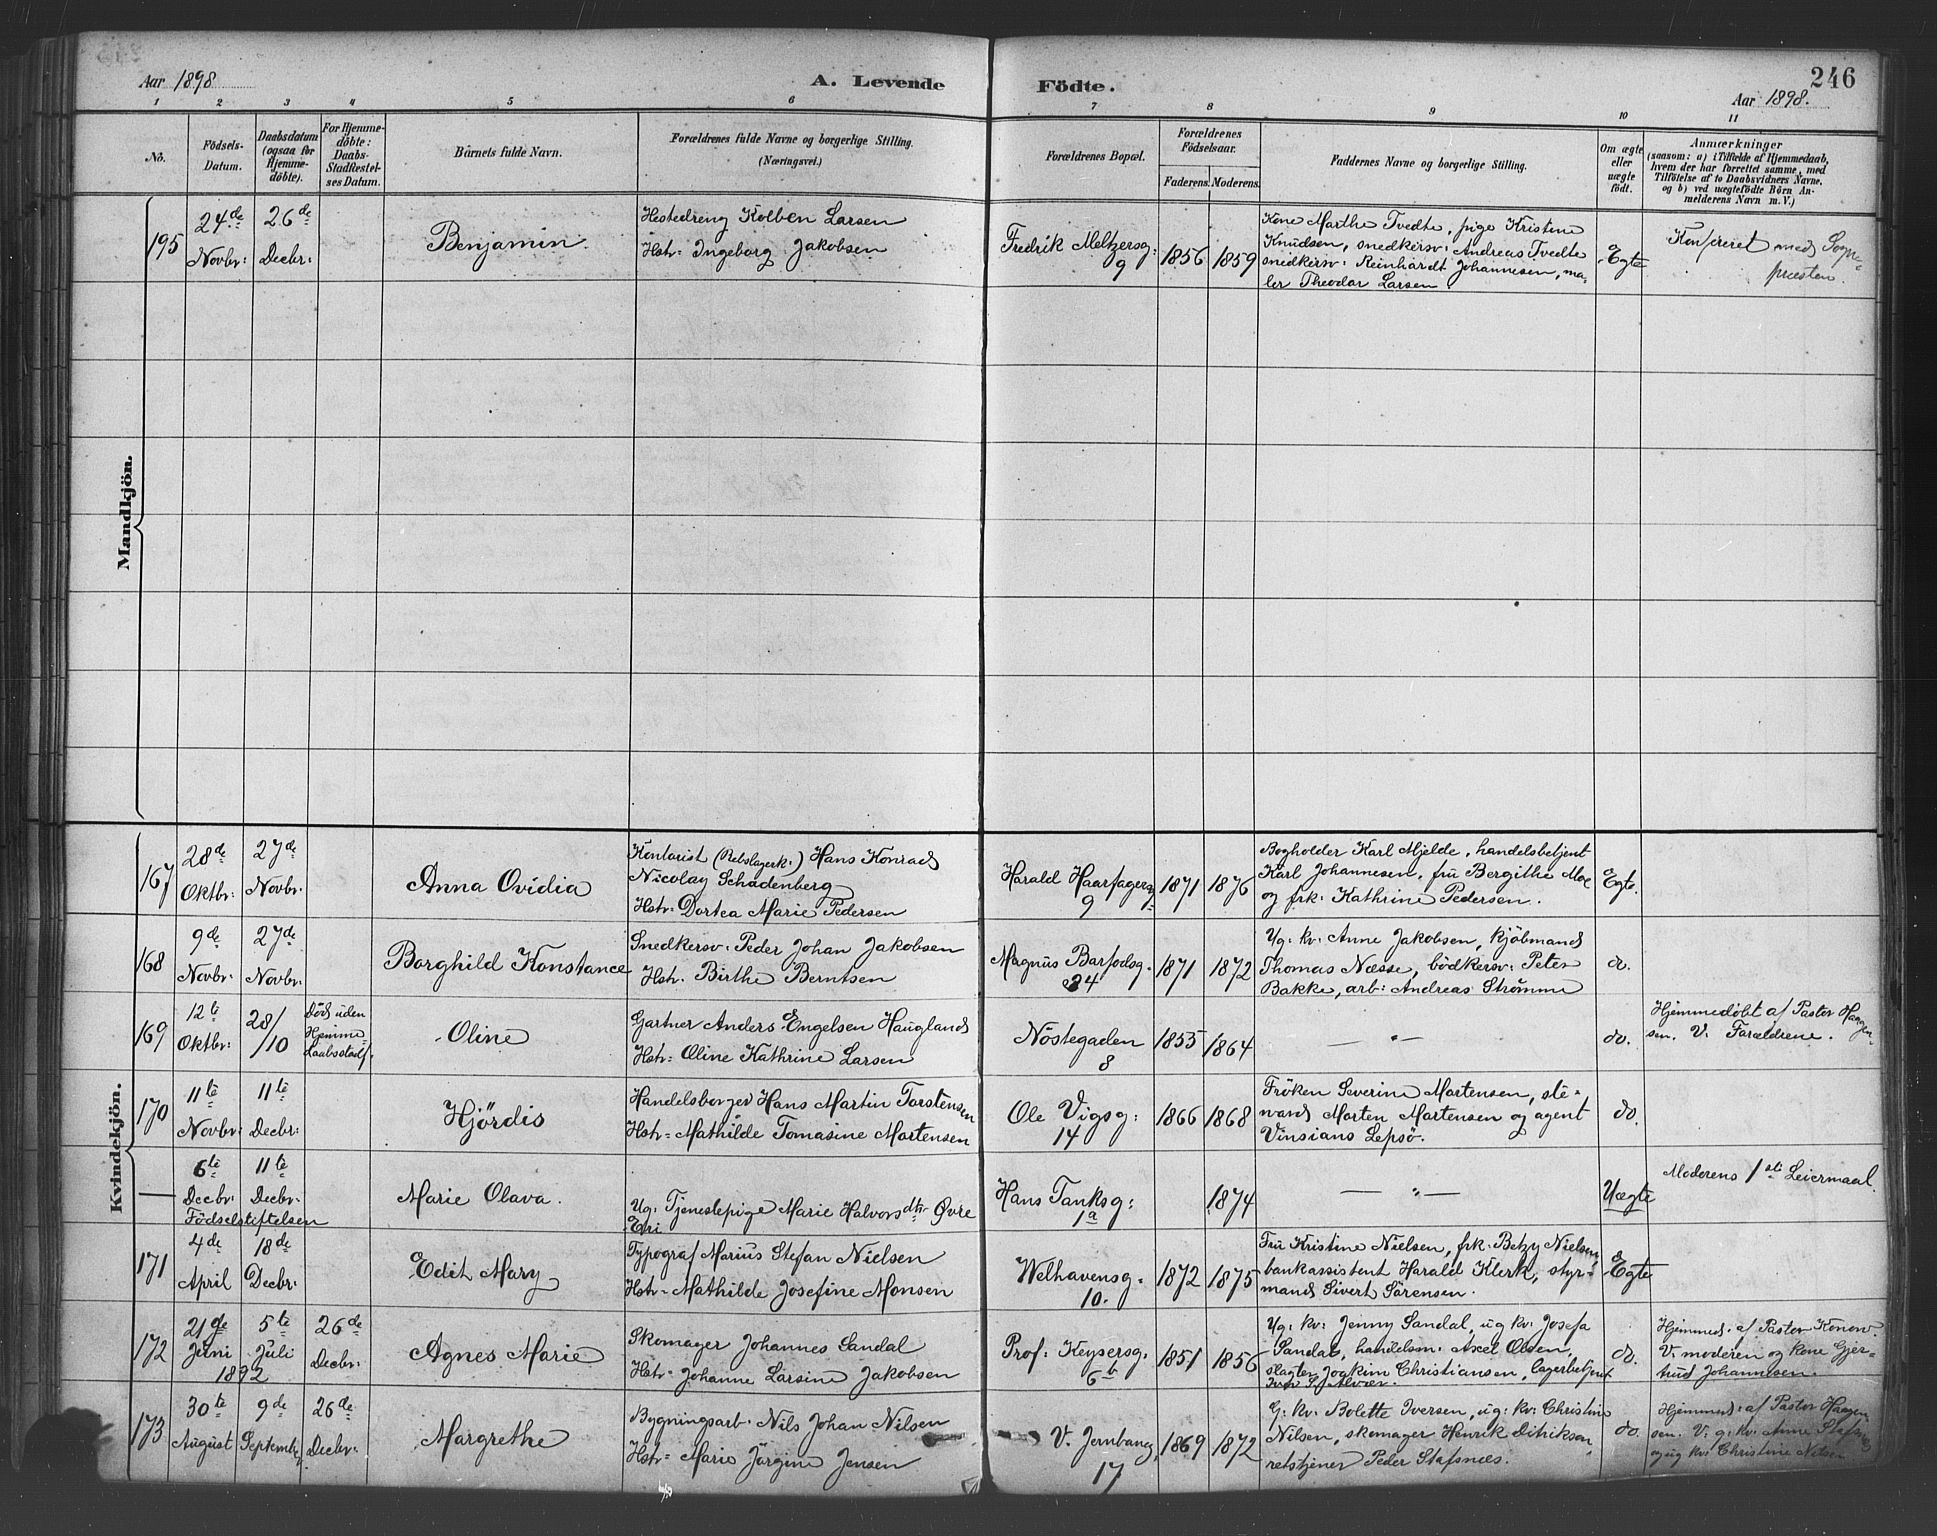 Aar 1898
A. Levende Födte.
246
Aar 1898.
1 2 3 4 5 6 7 8 9 10 11
No.
Födsels-
Datum.
Daabsdatum
(ogsaa for
Hjemme-
döbte).
For Hjemme-
döbte:
Daabs-
Stadfæstel-
ses Datum.
Barnets fulde Navn.
Forældrenes fulde Navne og borgerlige Stilling.
(Næringsvei.)
Forældrenes Bopæl.
Forældrenes
Födselsaar.
Faderens. Moderens.
Faddernes Navne og borgerlige Stilling.
Om ægte
eller
uægte
födt.
Anmærkninger
(saasom: a) i Tilfælde af Hjemmedaab,
hvem der har forrettet samme, med
Tilföielse af to Daabsvidners Navne,
og b) ved uægtefödte Börn An-
melderens Navn m. V.)
Mandkjön.
195
24de
Novbr:
26de
Decbr:
Benjamin.
Hestedreng Kolben Larsen
Hstr: Ingeborg Jakobsen
Fredrik Meltzersg:
9
1856
1859
Kone Marthe Tvedte, pige Kristine
Knudsen, snedkersv: Andreas Tvedte
snedkersv: Reinhardt Johannesen, ma-
ler Theodor Larsen
Egte
Konfereret med Sogne-
præsten.
Kvindekjön.
167
28de
Oktbr:
27de
Novbr:
Anna Ovidia
Kontorist (Rebslagerk:) Hans Konrad
Nicolay Schadenberg
Hstr: Dortea Marie Pedersen
Harald Haarfagersg:
9
1871
1876
Bogholder Karl Mjelde, handelsbetjent
Karl Johannesen, fru Bergithe Moe
og frk: Kathrine Pedersen.
Egte.
168
9de
Novbr:
27de
Novbr:
Borghild Konstance
Snedkersv: Peder Johan Jakobsen
Hstr. Birthe Berntsen
Magnus Barfodsg.
34
1871
1872
Ug: kv: Anne Jakobsen, kjöbmand
Thomas Næsse, bödkersv: Peter
Bakke, arb: Andreas Strömme
do.
169
12te
Oktbr:
28/10
Död uden
Hjemme-
daabsstadf.
Oline
Gartner Anders Engelsen Haugland
Hstr: Oline Kathrine Larsen
Nöstegaden
8
1855
1864
— " —
do.
Hjemmedöbt af Pastor Haagen-
sen. V. Forældrene.
170
11te
Novbr:
11te
Decbr:
Hjördis
Handelsborger Hans Martin Torstensen
Hstr: Mathilde Tomasine Martensen
Ole Vigsg:
14
1866
1868
Fröken Severine Martensen, ste-
ward Morten Martensen og agent
Vinsians Lepsö.
do.
—
6te
Decbr:
11te
Decbr.
Födselstiftelsen
Marie Olava.
Ug: Tjenestepige Marie Halvorsdtr Övre
Eri
Hans Tanksg:
1a
1874
— " —
Uægte
Moderens 1ste Leiermaal.
171
4de
April
18de
Decbr:
Edit Mary
Typograf Marius Stefan Nielsen
Hstr: Mathilde Josefine Monsen
Welhavensg.
10.
1872
1875
Fru Kristine Nielsen, frk: Betzy Nielsen,
bankassistent Harald Klerk, styr-
mand Sivert Sörensen.
Egte
172
21de
Juni
1892
5te
Juli
26de
Decbr:
Agnes Marie
Skomager Johannes Sandal
Hstr: Johanne Larsine Jakobsen
Prof: Keysersg.
6b
1851
1856
Ug: kv: Jenny Sandal, ug kv: Josefa
Sandal, handelsm: Axel Olsen,
slagter Joakim Christiansen, lagerbetjent
do.
Hjemmed: af Pastor Konow.
V. moderen og kone Gjer-
trud Johannesen.
173
30te
August
9de
Septemb:
26de
Decbr:
Margrethe
Bygningsarb: Nils Johan Nilsen
Hstr: Marie Jörgine Jensen
V. Jernbaneg.
17
1869
1872
G: kv: Bolette Iversen, ug: kv: Christine
Nilsen, skomager Henrik Dithiksen,
retstjener Peder Stafsnæs.
do.
Hjemmed: af Pastor Haagen-
sen. V. g: kv: Anne Stafsnæs
og ug kv: Christine Nilsen